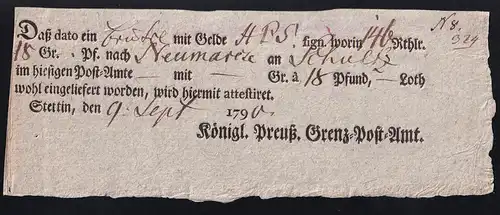 N 8.
324
Daß dato ein Beutel mit Gelde H P S. sign. worin 146 Rthlr.
18 Gr. Pf. nach Neumarck an Schultz
im hiesigen Post-Amte — mit — Gr. à 18 Pfund, — Loth
wohl eingeliefert worden, wird hiermit attestiret.
Stettin, den 9. Sept 1790.
Königl. Preuß. Grenz-Post-Amt.